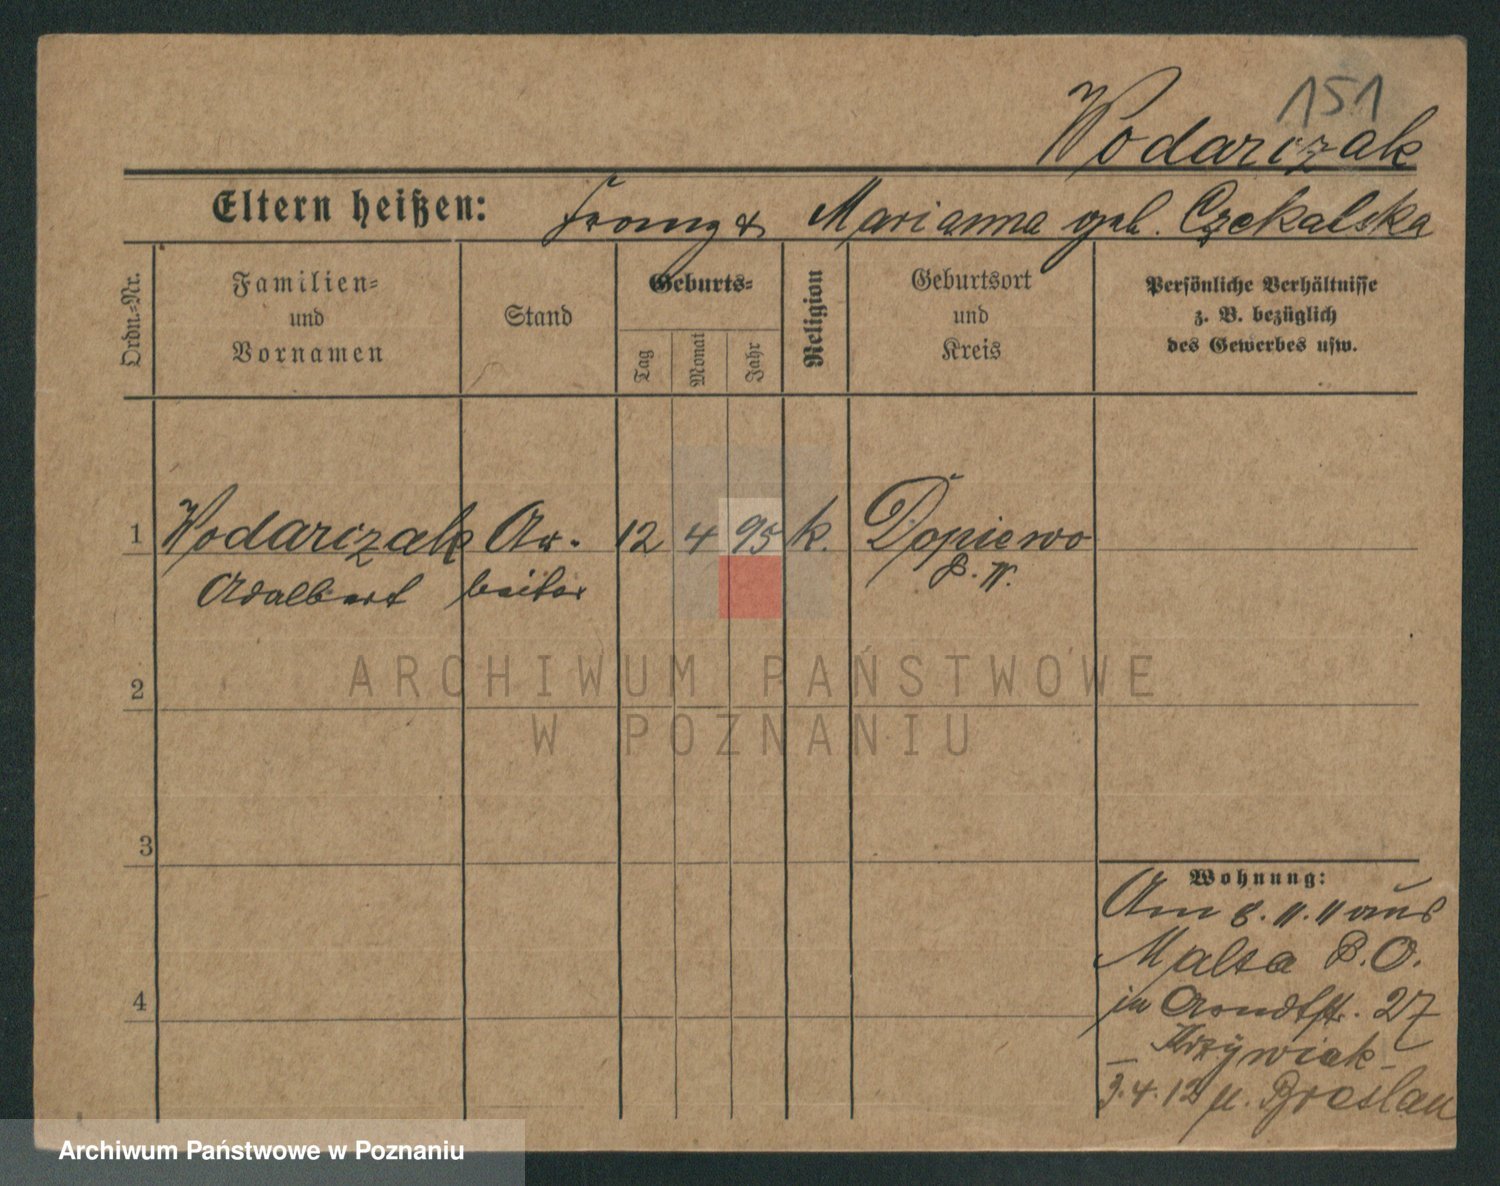 151
Wodarczak
Eltern heißen: Franz & Marianna geb. Czekalska
Ordn.-Nr.
Familien-
und
Vornamen
Stand
Geburts-
Tag
Monat
Jahr
Religion
Geburtsort
und
Kreis
Persönliche Verhältnisse
z. B. bezüglich
des Gewerbes usw.
1 Wodarczak Ar- 12 4 95 k. Dopiewo
Adalbert beiter P. W.
2
ARCHIWUM PAŃSTWOWE
W POZNANIU
3
Wohnung:
Am 8.11.11 aus
Malta P. O.
4
in Arndtstr. 27
– Krzywiak –
3.4.12 n. Breslau
Archiwum Państwowe w Poznaniu